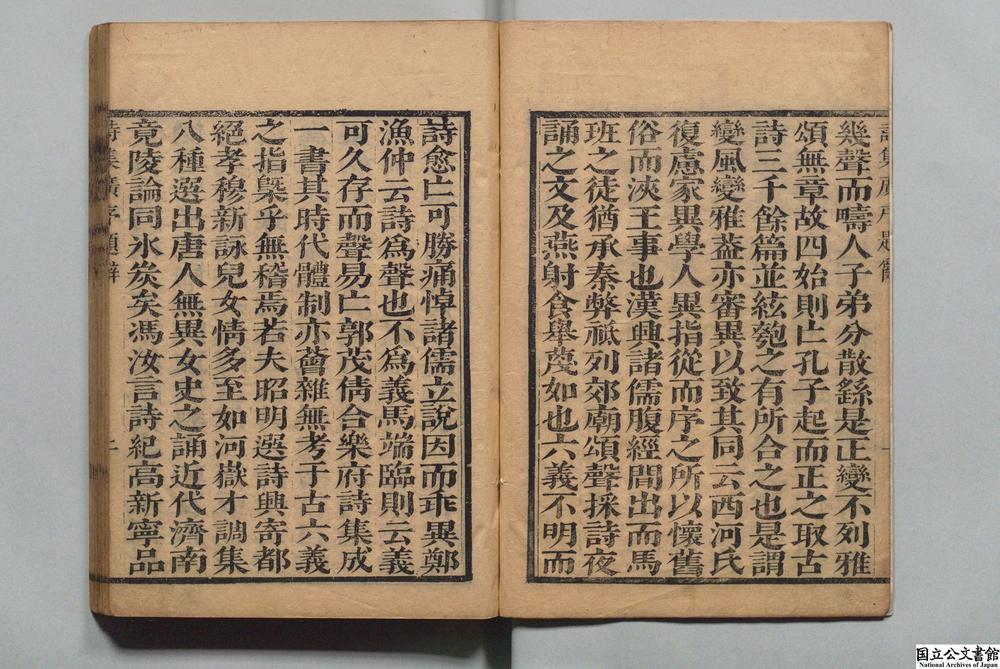 幾聲而疇人子弟分散繇是正變不列雅
頌無章故四始則亡孔子起而正之取古
詩三千餘篇並絃匏之有所合之也是謂
變風變雅葢亦審異以致其同云西河氏
復慮家異學人異指從而序之所以懷舊
俗而浹王事也漢興諸儒腹經間出而馬
班之徒猶承秦弊祗列郊廟頌聲採詩夜
誦之文及燕射食舉蔑如也六義不明而
詩愈亡可勝痛悼諸儒立說因而乖異鄭
漁仲云詩爲聲也不爲義馬端臨則云義
可久存而聲易亡郭茂倩合樂府詩集成
一書其時代體制亦薈雜無考于古六義
之指槩乎無稽焉若夫昭明選詩興寄都
絕孝穆新詠兒女情多至如河嶽才調集
八種選出唐人無異女史之誦近代濟南
竟陵論同氷炭矣馮汝言詩紀高新寧品
詩集廣序題解
二
国立公文書館
National Archives of Japan